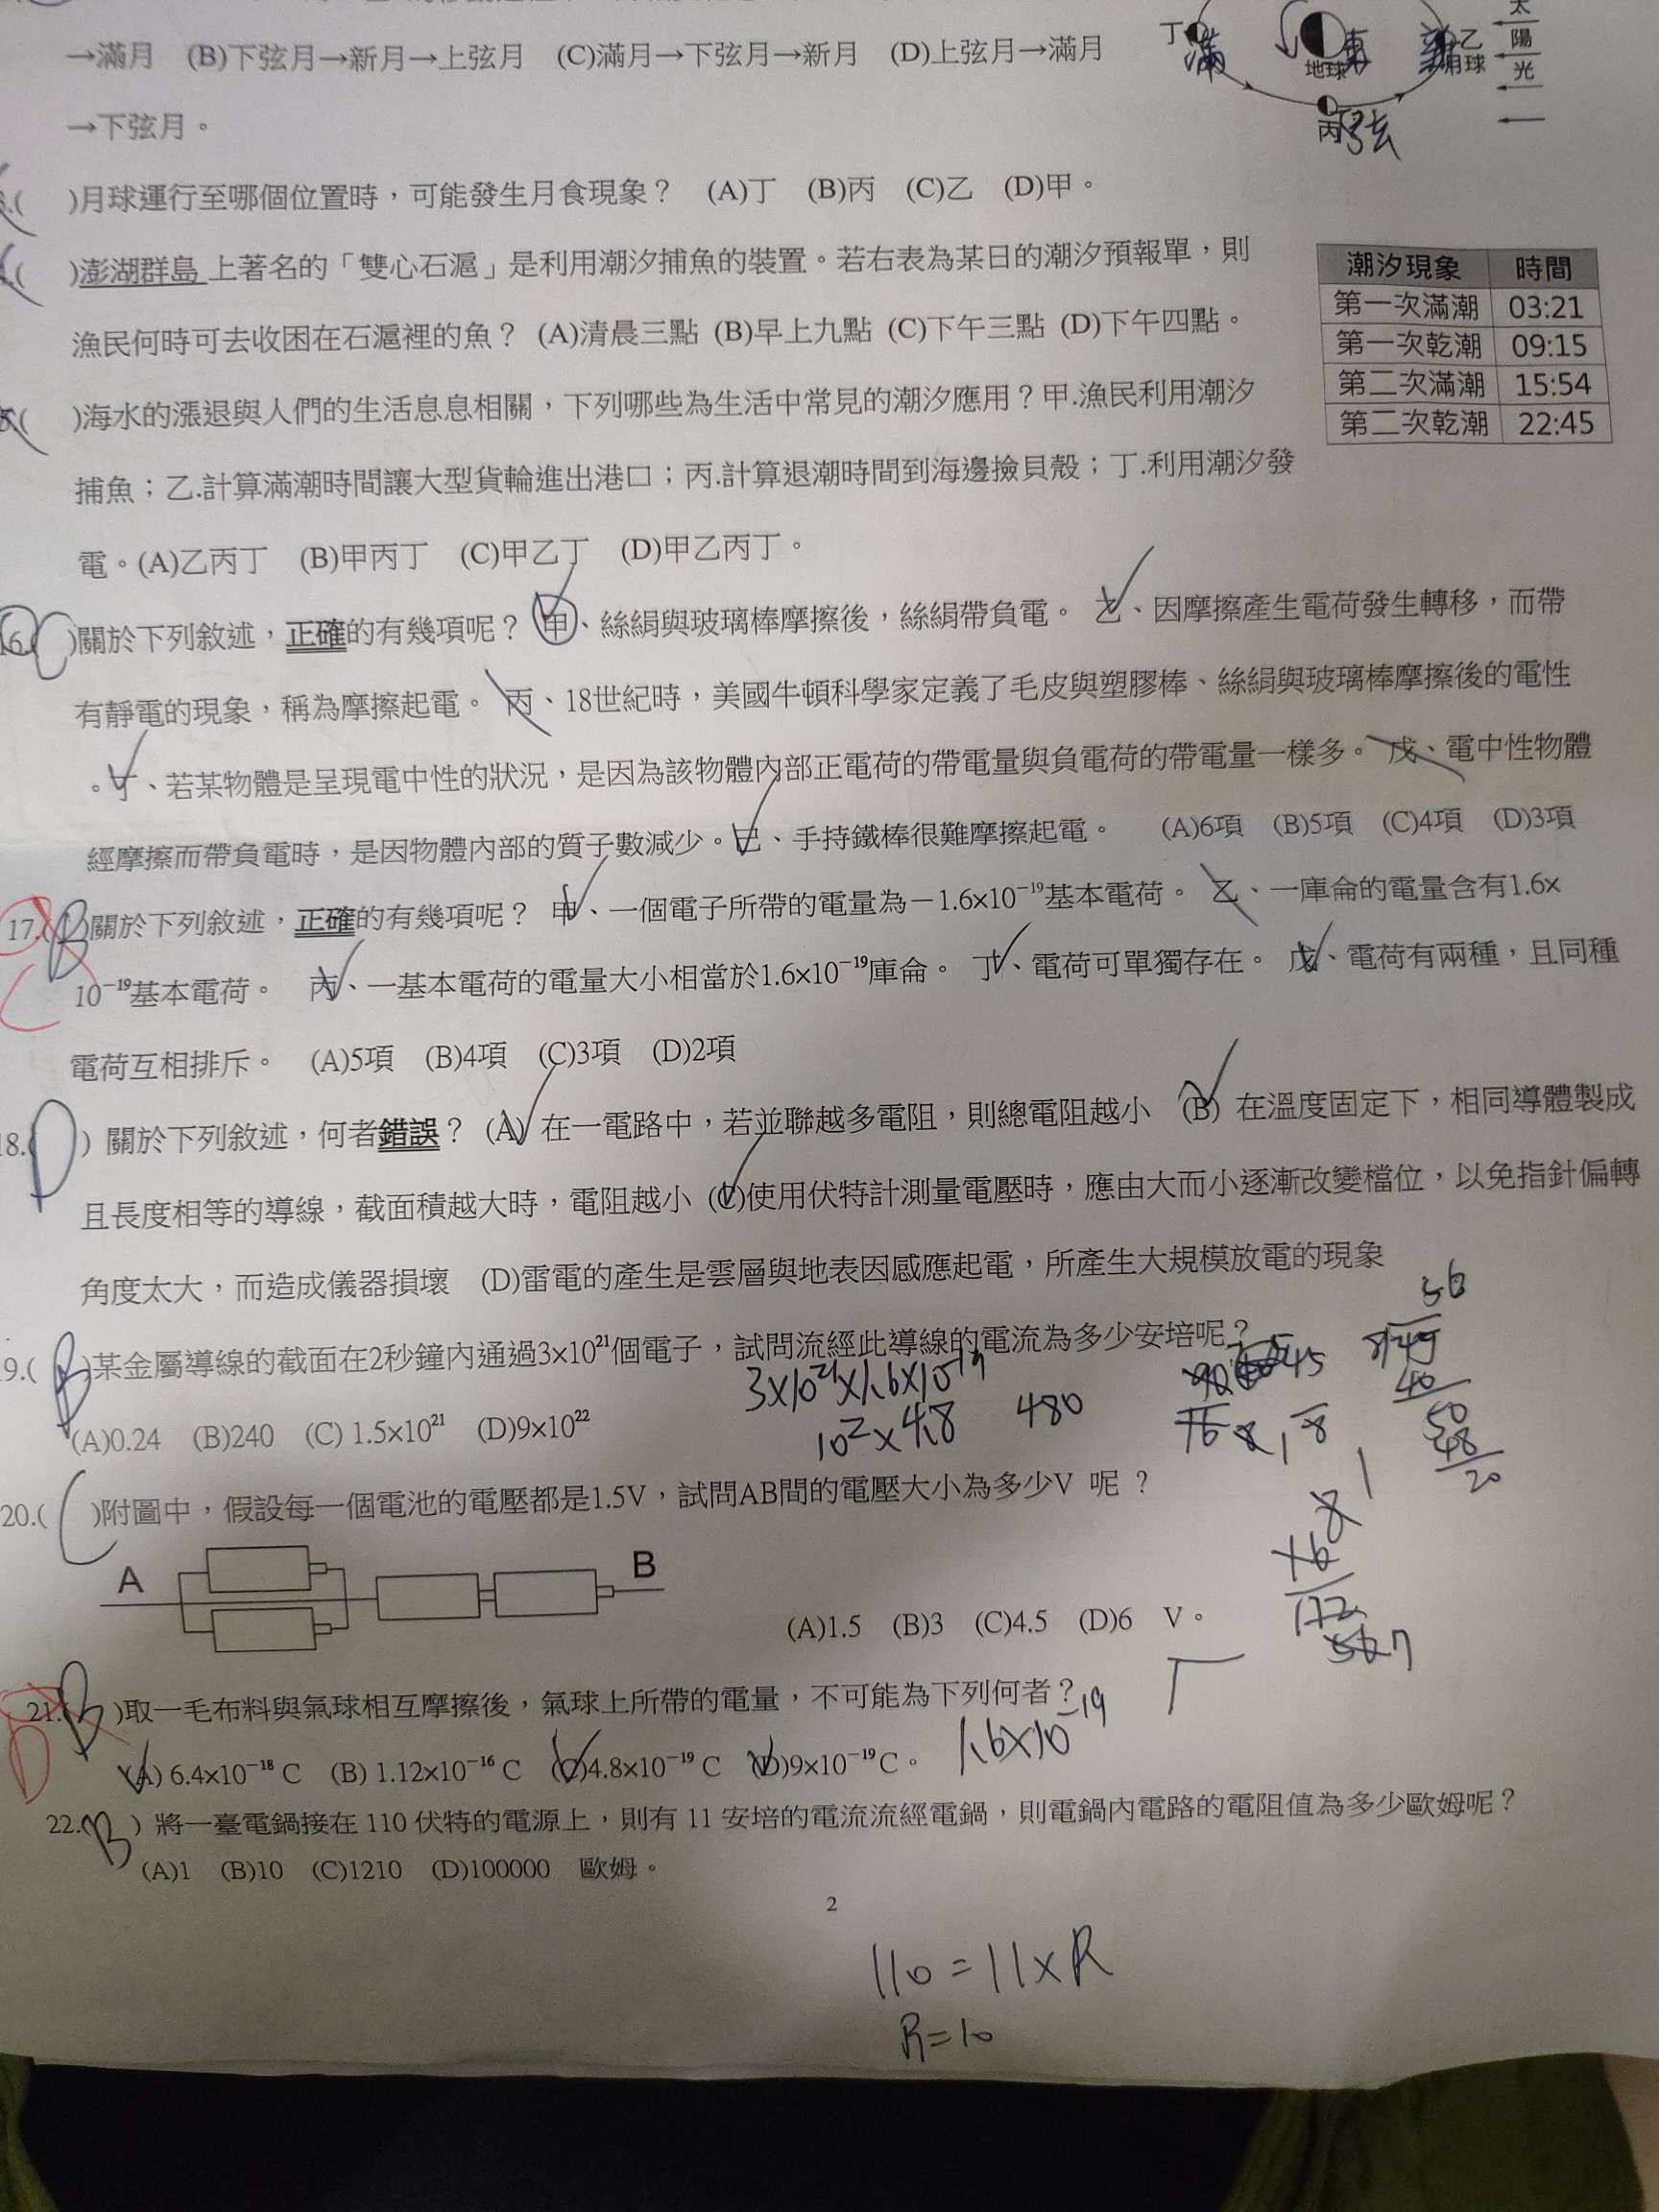 →滿月 (B)下弦月→新月→上弦月 (C)滿月→下弦月→新月 (D)上弦月→滿月
→下弦月。
丁 滿 地球 乙 月球 太陽光
丙 弦
.( )月球運行至哪個位置時，可能發生月食現象？ (A)丁 (B)丙 (C)乙 (D)甲。
( )澎湖群島上著名的「雙心石滬」是利用潮汐捕魚的裝置。若右表為某日的潮汐預報單，則
漁民何時可去收困在石滬裡的魚？ (A)清晨三點 (B)早上九點 (C)下午三點 (D)下午四點。
潮汐現象 時間
第一次滿潮 03:21
第一次乾潮 09:15
第二次滿潮 15:54
第二次乾潮 22:45
( )海水的漲退與人們的生活息息相關，下列哪些為生活中常見的潮汐應用？甲.漁民利用潮汐
捕魚；乙.計算滿潮時間讓大型貨輪進出港口；丙.計算退潮時間到海邊撿貝殼；丁.利用潮汐發
電。(A)乙丙丁 (B)甲丙丁 (C)甲乙丁 (D)甲乙丙丁。
16.( C )關於下列敘述，正確的有幾項呢？ 甲、絲絹與玻璃棒摩擦後，絲絹帶負電。 乙、因摩擦產生電荷發生轉移，而帶
有靜電的現象，稱為摩擦起電。 丙、18世紀時，美國牛頓科學家定義了毛皮與塑膠棒、絲絹與玻璃棒摩擦後的電性
。丁、若某物體是呈現電中性的狀況，是因為該物體內部正電荷的帶電量與負電荷的帶電量一樣多。 戊、電中性物體
經摩擦而帶負電時，是因物體內部的質子數減少。己、手持鐵棒很難摩擦起電。 (A)6項 (B)5項 (C)4項 (D)3項
17.( B )關於下列敘述，正確的有幾項呢？ 甲、一個電子所帶的電量為－1.6×10⁻¹⁹基本電荷。 乙、一庫侖的電量含有1.6×
C
10⁻¹⁹基本電荷。 丙、一基本電荷的電量大小相當於1.6×10⁻¹⁹庫侖。 丁、電荷可單獨存在。 戊、電荷有兩種，且同種
電荷互相排斥。 (A)5項 (B)4項 (C)3項 (D)2項
18.( D ) 關於下列敘述，何者錯誤？ (A) 在一電路中，若並聯越多電阻，則總電阻越小 (B) 在溫度固定下，相同導體製成
且長度相等的導線，截面積越大時，電阻越小 (C)使用伏特計測量電壓時，應由大而小逐漸改變檔位，以免指針偏轉
角度太大，而造成儀器損壞 (D)雷電的產生是雲層與地表因感應起電，所產生大規模放電的現象
9.( B )某金屬導線的截面在2秒鐘內通過3×10²¹個電子，試問流經此導線的電流為多少安培呢？
3×10²¹×1.6×10⁻¹⁹
(A)0.24 (B)240 (C) 1.5×10²¹ (D)9×10²²
10²×4.8 480
56
40
50
48
20
20.( C )附圖中，假設每一個電池的電壓都是1.5V，試問AB間的電壓大小為多少V 呢？
A B
(A)1.5 (B)3 (C)4.5 (D)6 V。
21.( B )取一毛布料與氣球相互摩擦後，氣球上所帶的電量，不可能為下列何者？
D
(A) 6.4×10⁻¹⁸ C (B) 1.12×10⁻¹⁶ C (C)4.8×10⁻¹⁹ C (D)9×10⁻¹⁹C。
1.6×10⁻¹⁹
22.( B ) 將一臺電鍋接在 110 伏特的電源上，則有 11 安培的電流流經電鍋，則電鍋內電路的電阻值為多少歐姆呢？
(A)1 (B)10 (C)1210 (D)100000 歐姆。
2
110=11×R
R=10